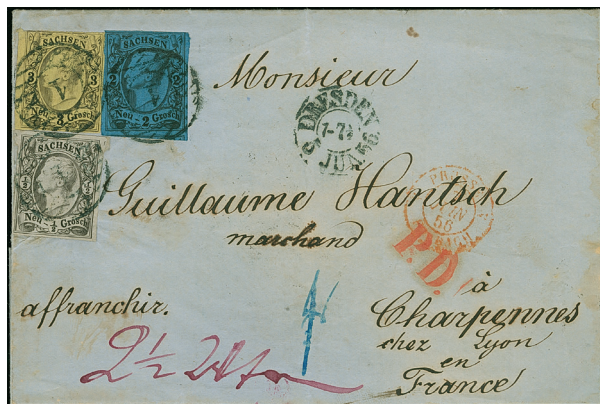 SACHSEN
3 3
Neu 3 Grosch
SACHSEN
2 2
Neu 2 Grosch
SACHSEN
½ ½
Neu ½ Grosch
Monsieur
DRESDEN
JUN. 56
Guillaume Hantsch
marchand
56
P.D.
à
affranchir.
Charpennes
chez Lyon
en
France
2½